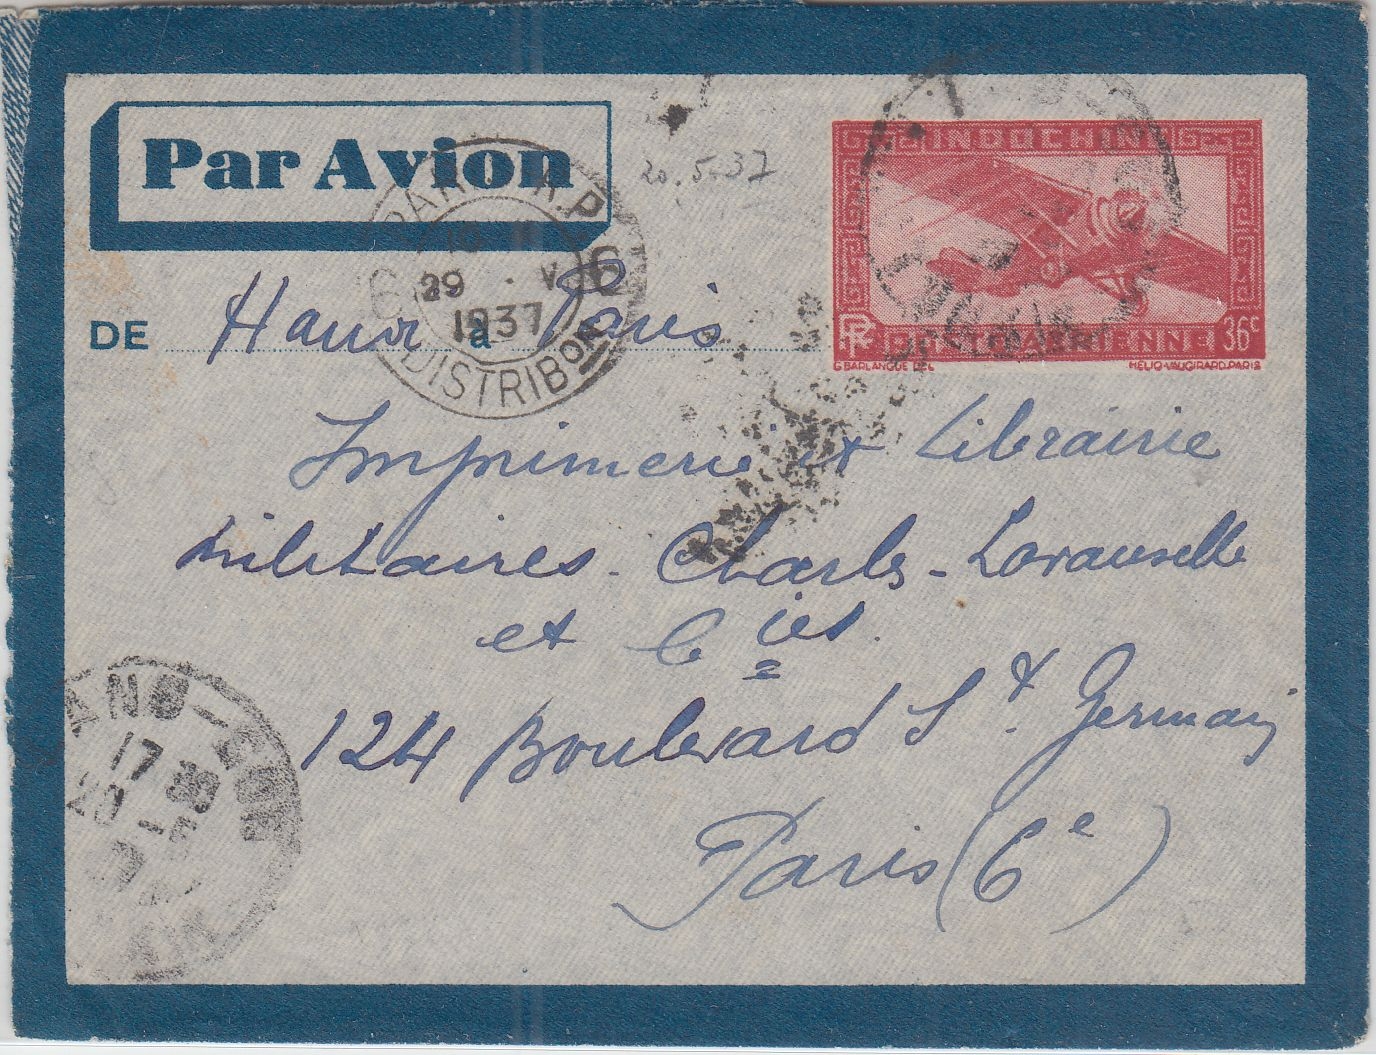 Par Avion
20.5.37
INDOCHINE
RF POSTE AÉRIENNE 36c
G BARLANGUE DEL HELIO-VAUGIRARD.PARIS
PARIS R.P
29 · V 6
1937
DISTRIBON
DE Hanoi à Paris
Imprimerie et Librairie
Militaires - Charles - Lavauselle
et Cies.
124 Boulevard St. Germain
Paris (6e)
17
20